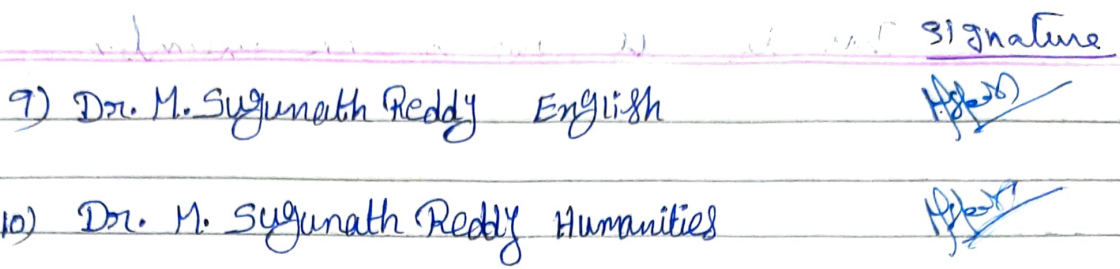 Signature
9) Dr. M. Sugunath Reddy English
10) Dr. M. Sugunath Reddy Humanities